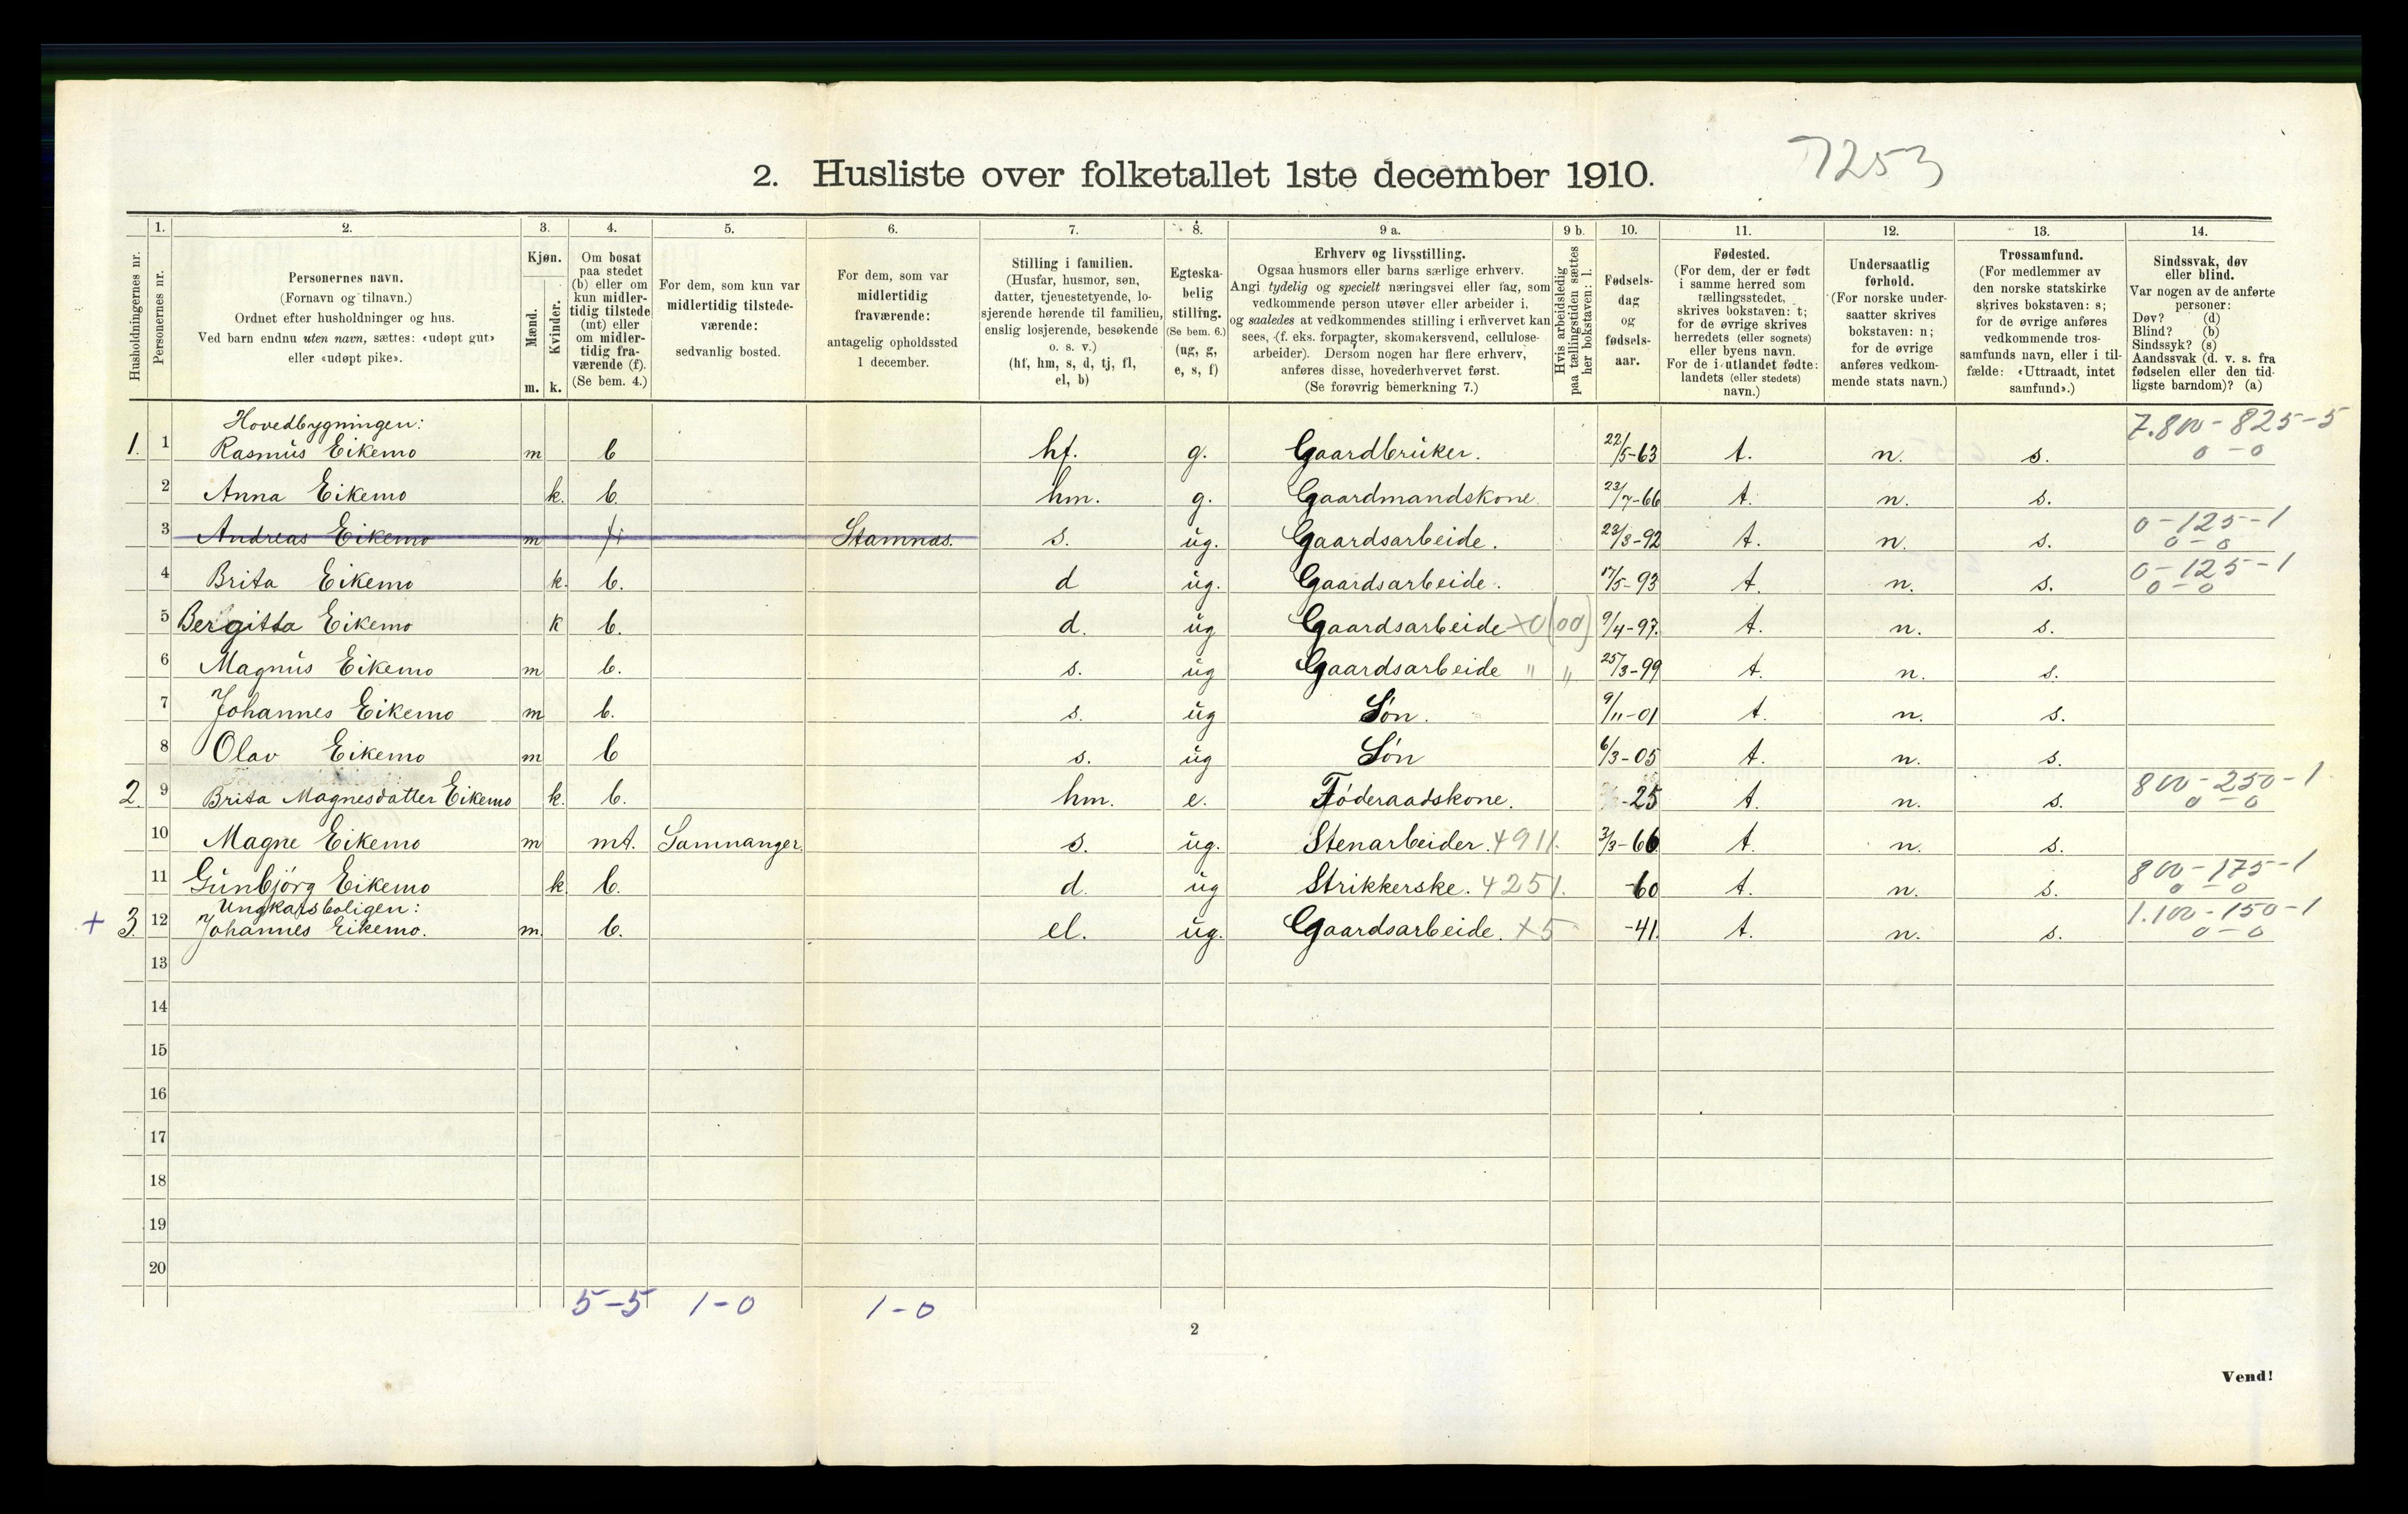 7253
2. Husliste over folketallet 1ste december 1910.
Husholdningernes nr.
1.
Personernes nr.
2.
Personernes navn.
(Fornavn og tilnavn.)
Ordnet efter husholdninger og hus.
Ved barn endnu uten navn, sættes: «udøpt gut»
eller «udøpt pike».
3.
Kjøn.
Mænd.
Kvinder.
m. k.
4.
Om bosat
paa stedet
(b) eller om
kun midler-
tidig tilstede
(mt) eller
om midler-
tidig fra-
værende (f).
(Se bem. 4.)
5.
For dem, som kun var
midlertidig tilstede-
værende:
sedvanlig bosted.
6.
For dem, som var
midlertidig
fraværende:
antagelig opholdssted
1 december.
7.
Stilling i familien.
(Husfar, husmor, søn,
datter, tjenestetyende, lo-
sjerende hørende til familien,
enslig losjerende, besøkende
o. s. v.)
(hf, hm, s, d, tj, fl,
el, b)
8.
Egteska-
belig
stilling.
(Se bem. 6.)
(ug, g,
e, s, f)
9 a.
Erhverv og livsstilling.
Ogsaa husmors eller barns særlige erhverv.
Angi tydelig og specielt næringsvei eller fag, som
vedkommende person utøver eller arbeider i,
og saaledes at vedkommendes stilling i erhvervet kan
sees, (f. eks. forpagter, skomakersvend, cellulose-
arbeider). Dersom nogen har flere erhverv,
anføres disse, hovederhvervet først.
(Se forøvrig bemerkning 7.)
9 b.
Hvis arbeidsledig
paa tællingstiden sættes
her bokstaven: l.
10.
Fødsels-
dag
og
fødsels-
aar.
11.
Fødested.
(For dem, der er født
i samme herred som
tællingsstedet,
skrives bokstaven: t;
for de øvrige skrives
herredets (eller sognets)
eller byens navn.
For de i utlandet fødte:
landets (eller stedets)
navn.)
12.
Undersaatlig
forhold.
(For norske under-
saatter skrives
bokstaven: n;
for de øvrige
anføres vedkom-
mende stats navn.)
13.
Trossamfund.
(For medlemmer av
den norske statskirke
skrives bokstaven: s;
for de øvrige anføres
vedkommende tros-
samfunds navn, eller i til-
fælde: «Uttraadt, intet
samfund».)
14.
Sindssvak, døv
eller blind.
Var nogen av de anførte
personer:
Døv? (d)
Blind? (b)
Sindssyk? (s)
Aandssvak (d. v. s. fra
fødselen eller den tid-
ligste barndom)? (a)
Hovedbygningen: 7.800-825-5
1. 1 Rasmus Eikemo m b hf. g. Gaardbruker. 22/5-63 t. n. s. 0-0
2 Anna Eikemo k. b. hm. g. Gaardmandskone. 23/7-66 t. n. s.
3 Andreas Eikemo m f Stamnæs. s. ug. Gaardsarbeide. 23/8-92 t. n. s. 0-125-1
0-0
4 Brita Eikemo k. b. d ug. Gaardsarbeide. 17/5-93 t. n. s. 0-125-1
0-0
5 Bergitta Eikemo k b. d. ug Gaardsarbeide x0(00) 9/4-97. t. n. s.
6 Magnus Eikemo m b. s. ug Gaardsarbeide " " 25/3-99 t. n. s.
7 Johannes Eikemo m b. s. ug Søn. 9/11-01 t. n. s.
8 Olav Eikemo m b s. ug Søn 6/3-05 t. n. s.
2. 9 Brita Magnesdatter Eikemo k. b. hm. e. Føderaadskone. -25 t. n. s. 800-250-1
0-0
10 Magne Eikemo m mt. Samnanger. s. ug. Stenarbeider. 4911. 3/3-66 t. n. s.
11 Gunbjørg Eikemo k b. d. ug Strikkerske. 4251. -60 t. n. s. 800-175-1
0-0
Ungkarsboligen:
+ 3. 12 Johannes Eikemo. m. b. el. ug. Gaardsarbeide. x5 -41. t. n. s. 1.100-150-1
0-0
13
14
15
16
17
18
19
20
5-5 1-0 1-0
2
Vend!